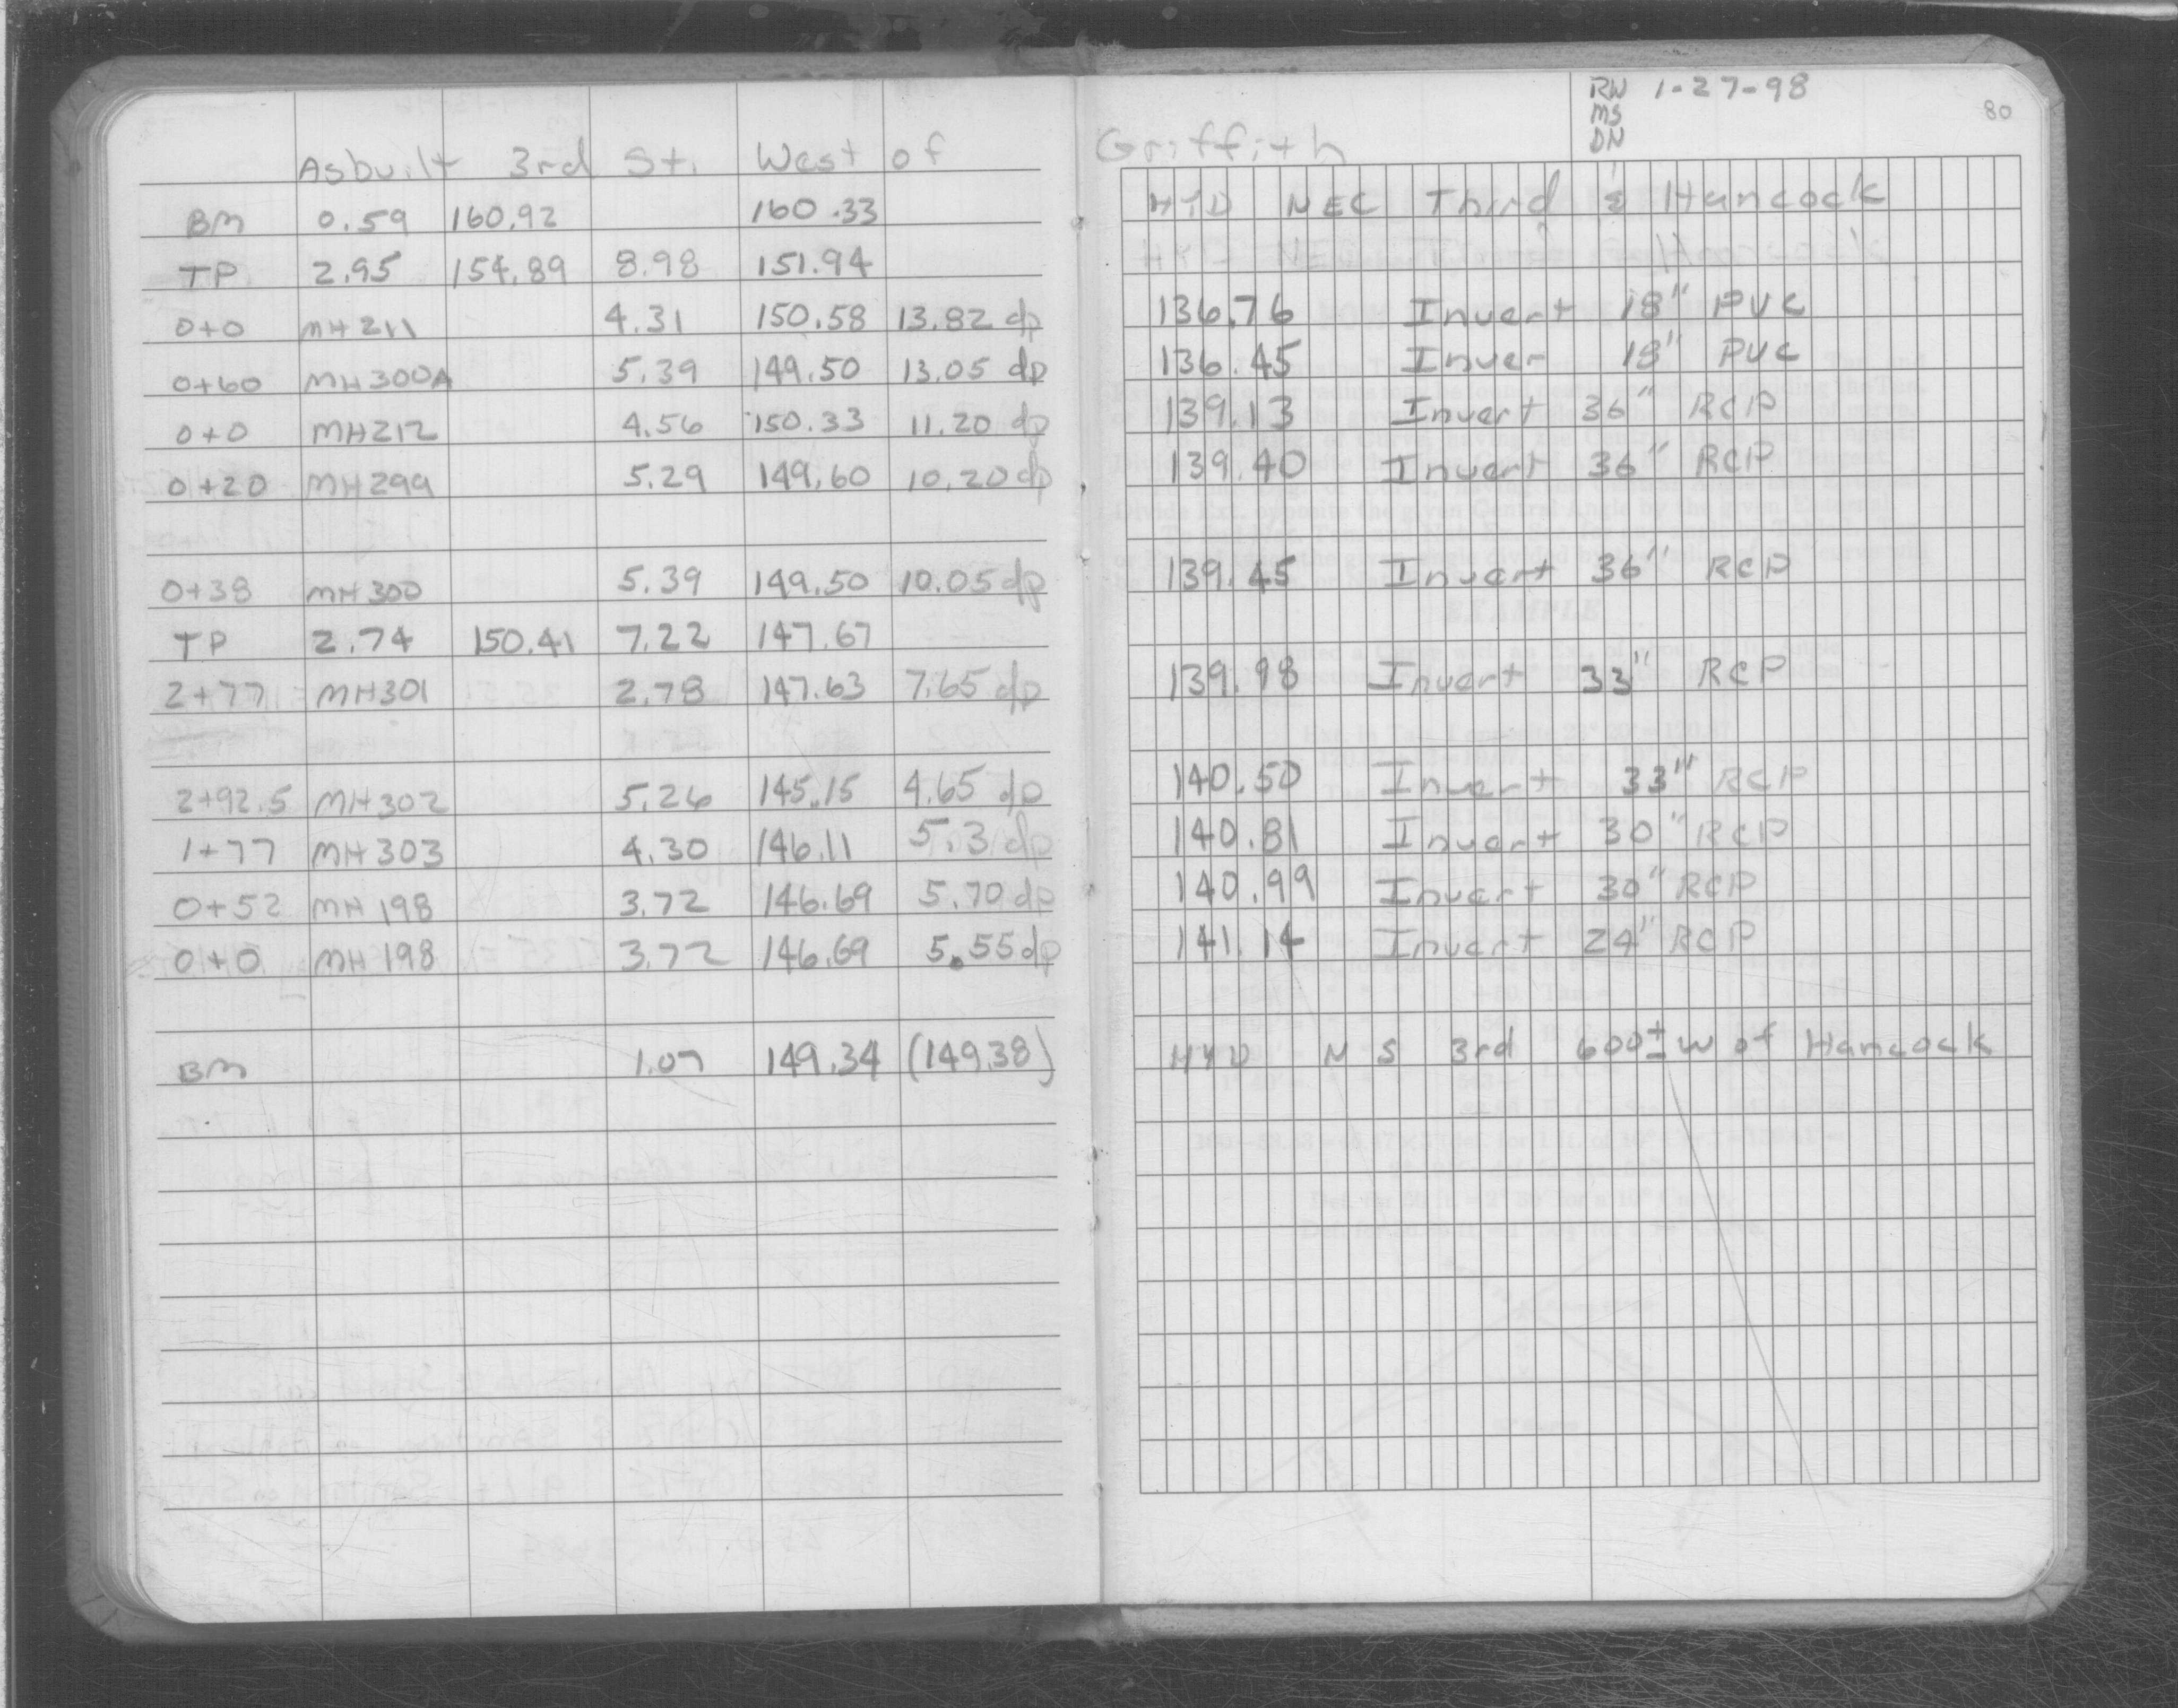 RW 1-27-98
MS
DN
80
Asbuilt 3rd St. West of Griffith
BM 0.59 160.92 160.33 HYD NEC Third & Hancock
TP 2.95 154.89 8.98 151.94
0+0 MH211 4.31 150.58 13.82 dp 136.76 Invert 18" PVC
0+60 MH300A 5.39 149.50 13.05 dp 136.45 Inver 18" PVC
0+0 MH212 4.56 150.33 11.20 dp 139.13 Invert 36" RCP
0+20 MH299 5.29 149.60 10.20 dp 139.40 Invert 36" RCP
0+38 MH300 5.39 149.50 10.05 dp 139.45 Invert 36" RCP
TP 2.74 150.41 7.22 147.67
2+77 MH301 2.78 147.63 7.65 dp 139.98 Invert 33" RCP
2+92.5 MH302 5.26 145.15 4.65 dp 140.50 Invert 33" RCP
1+77 MH303 4.30 146.11 5.3 dp 140.81 Invert 30" RCP
0+52 MH198 3.72 146.69 5.70 dp 140.99 Invert 30" RCP
0+0 MH198 3.72 146.69 5.55 dp 141.14 Invert 24" RCP
BM 1.07 149.34 (149.38) HYD N S 3rd 600± W of Hancock